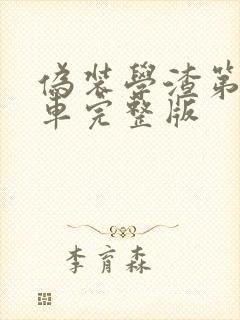 偽裝學渣第
車完整版
李育森